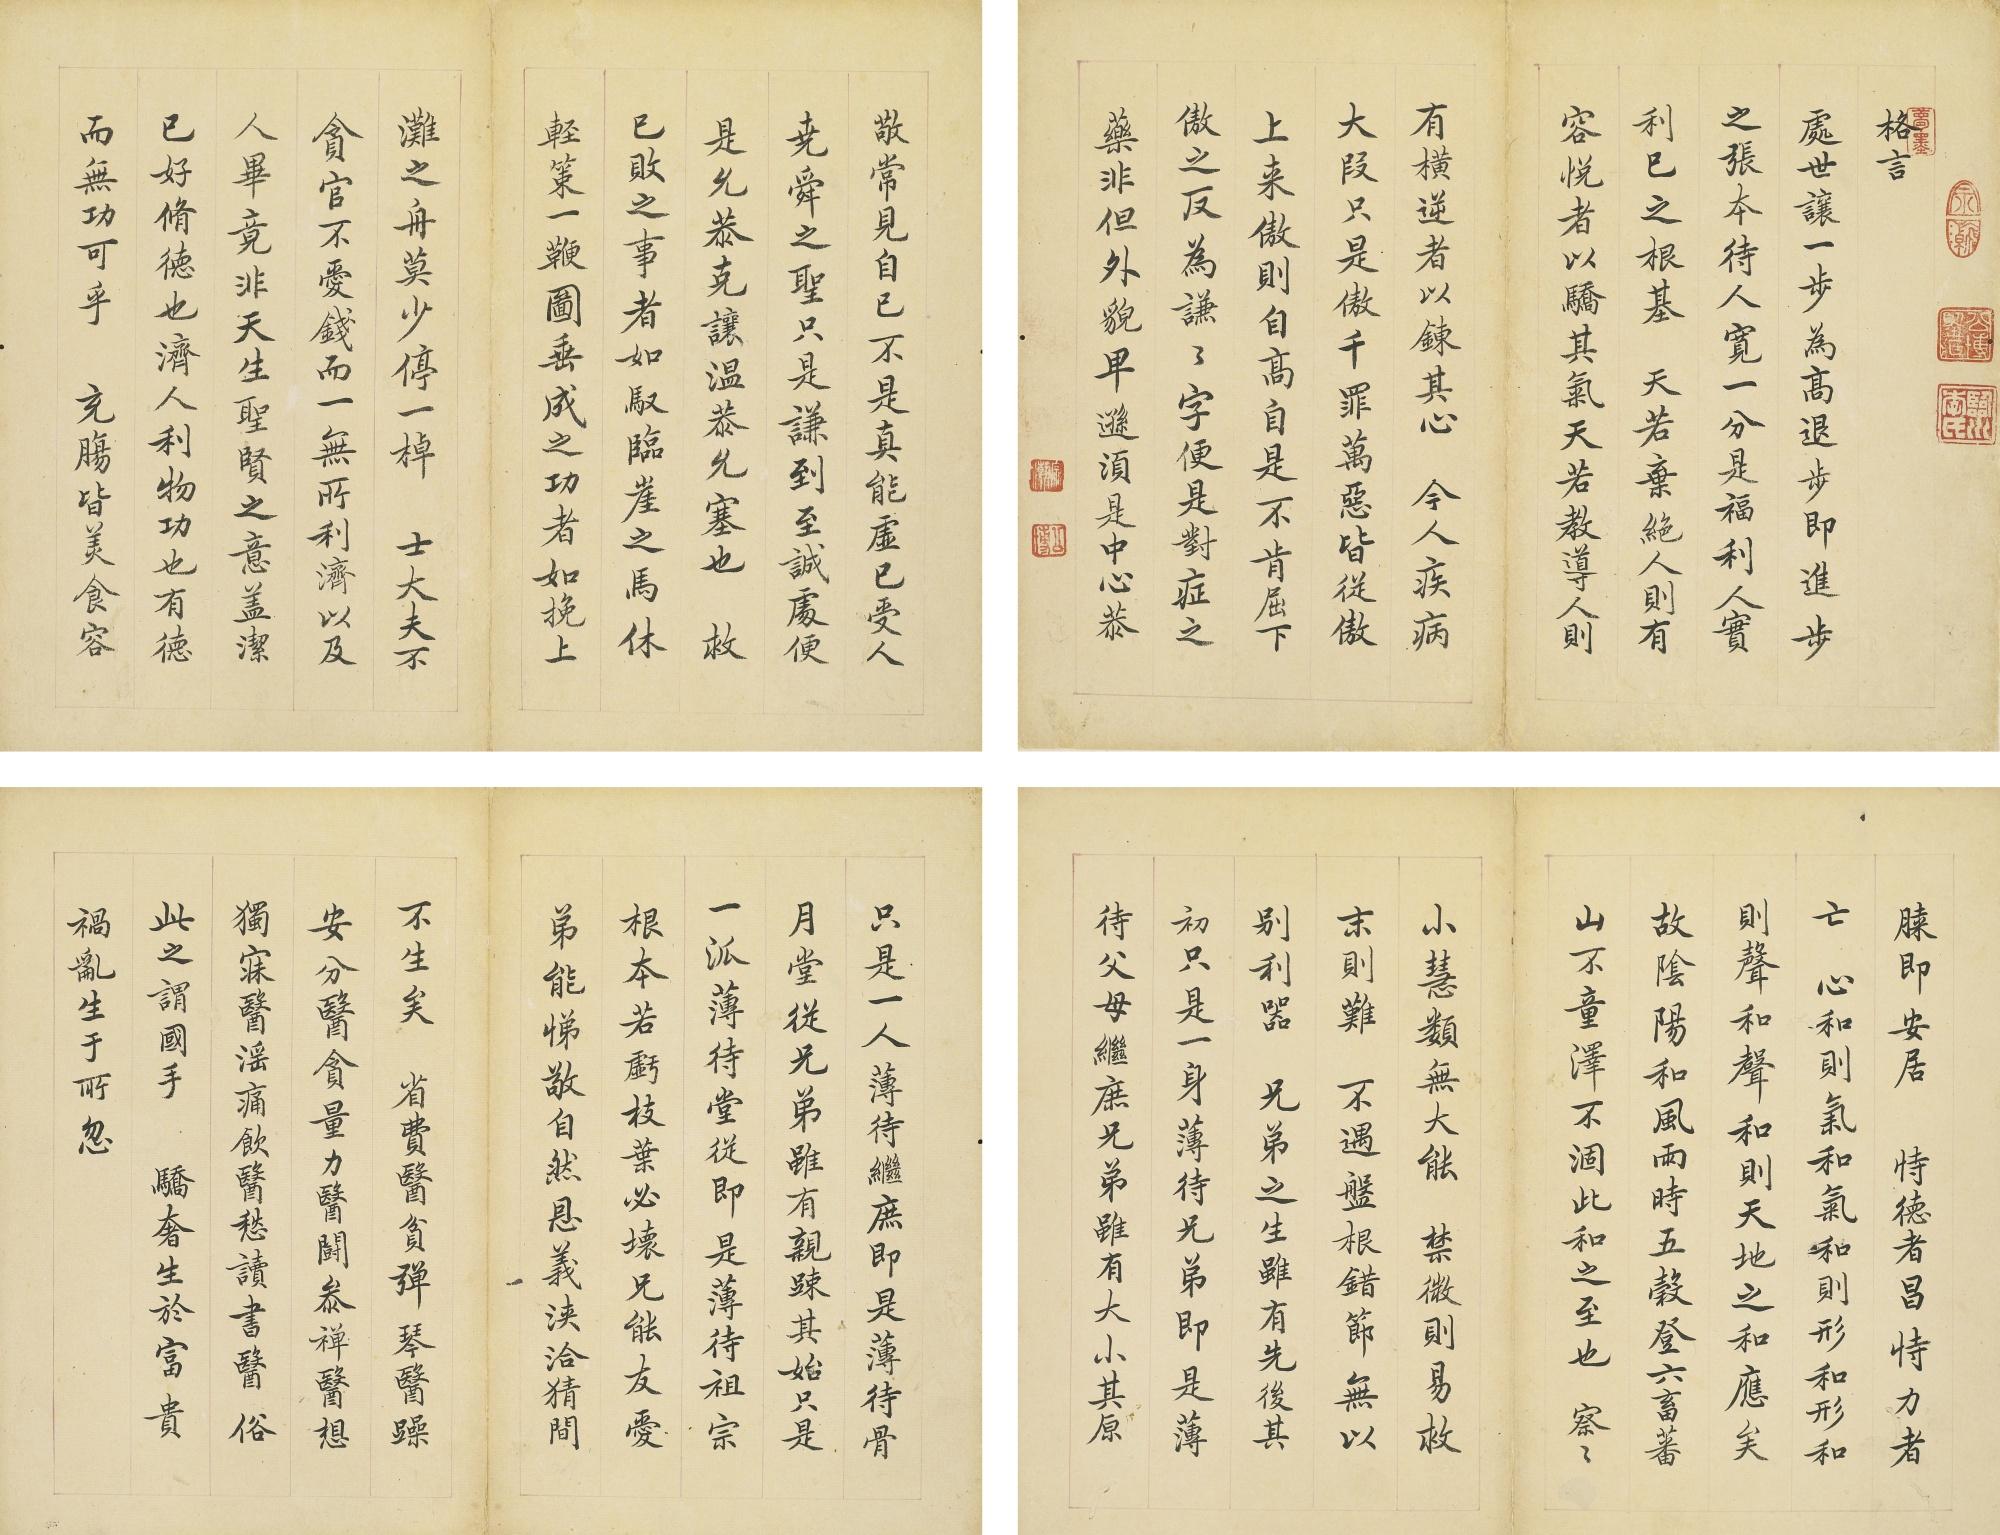 格言
處世讓一步為高退步即進步
之張本待人寬一分是福利人實
利己之根基　天若棄絕人則有
容悅者以驕其氣天若教導人則
有橫逆者以鍊其心　今人疾病
大段只是傲千罪萬惡皆從傲
上来傲則自高自是不肯屈下
傲之反為謙〻字便是對症之
藥非但外貌卑遜湏是中心恭
敬常見自己不是真能虛己受人
尭舜之聖只是謙到至誠處便
是允恭克讓温恭允塞也　救
已敗之事者如馭臨崖之馬休
輕策一鞭圖垂成之功者如挽上
灘之舟莫少停一棹　士大夫不
貪官不愛錢而一無所利濟以及
人畢竟非天生聖賢之意盖潔
己好脩德也濟人利物功也有德
而無功可乎　充腸皆美食容
膝即安居　恃德者昌恃力者
亡　心和則氣和氣和則形和形和
則聲和聲和則天地之和應矣
故陰陽和風雨時五穀登六畜蕃
山不童澤不涸此和之至也　察〻
小慧類無大能　禁微則易救
末則難　不遇盤根錯節無以
别利器　兄弟之生雖有先後其
初只是一身薄待兄弟即是薄
待父母繼庶兄弟雖有大小其原
只是一人薄待繼庶即是薄待骨
月堂從兄弟雖有親踈其始只是
一派薄待堂從即是薄待祖宗
根本若虧枝葉必壞兄能友愛
弟能悌敬自然恩義浹洽猜間
不生矣　省費醫貧彈琴醫躁
安分醫貪量力醫鬪叅禅醫想
獨寐醫滛痛飲醫愁讀書醫俗
此之謂國手　驕奢生於富貴
禍亂生于所忽